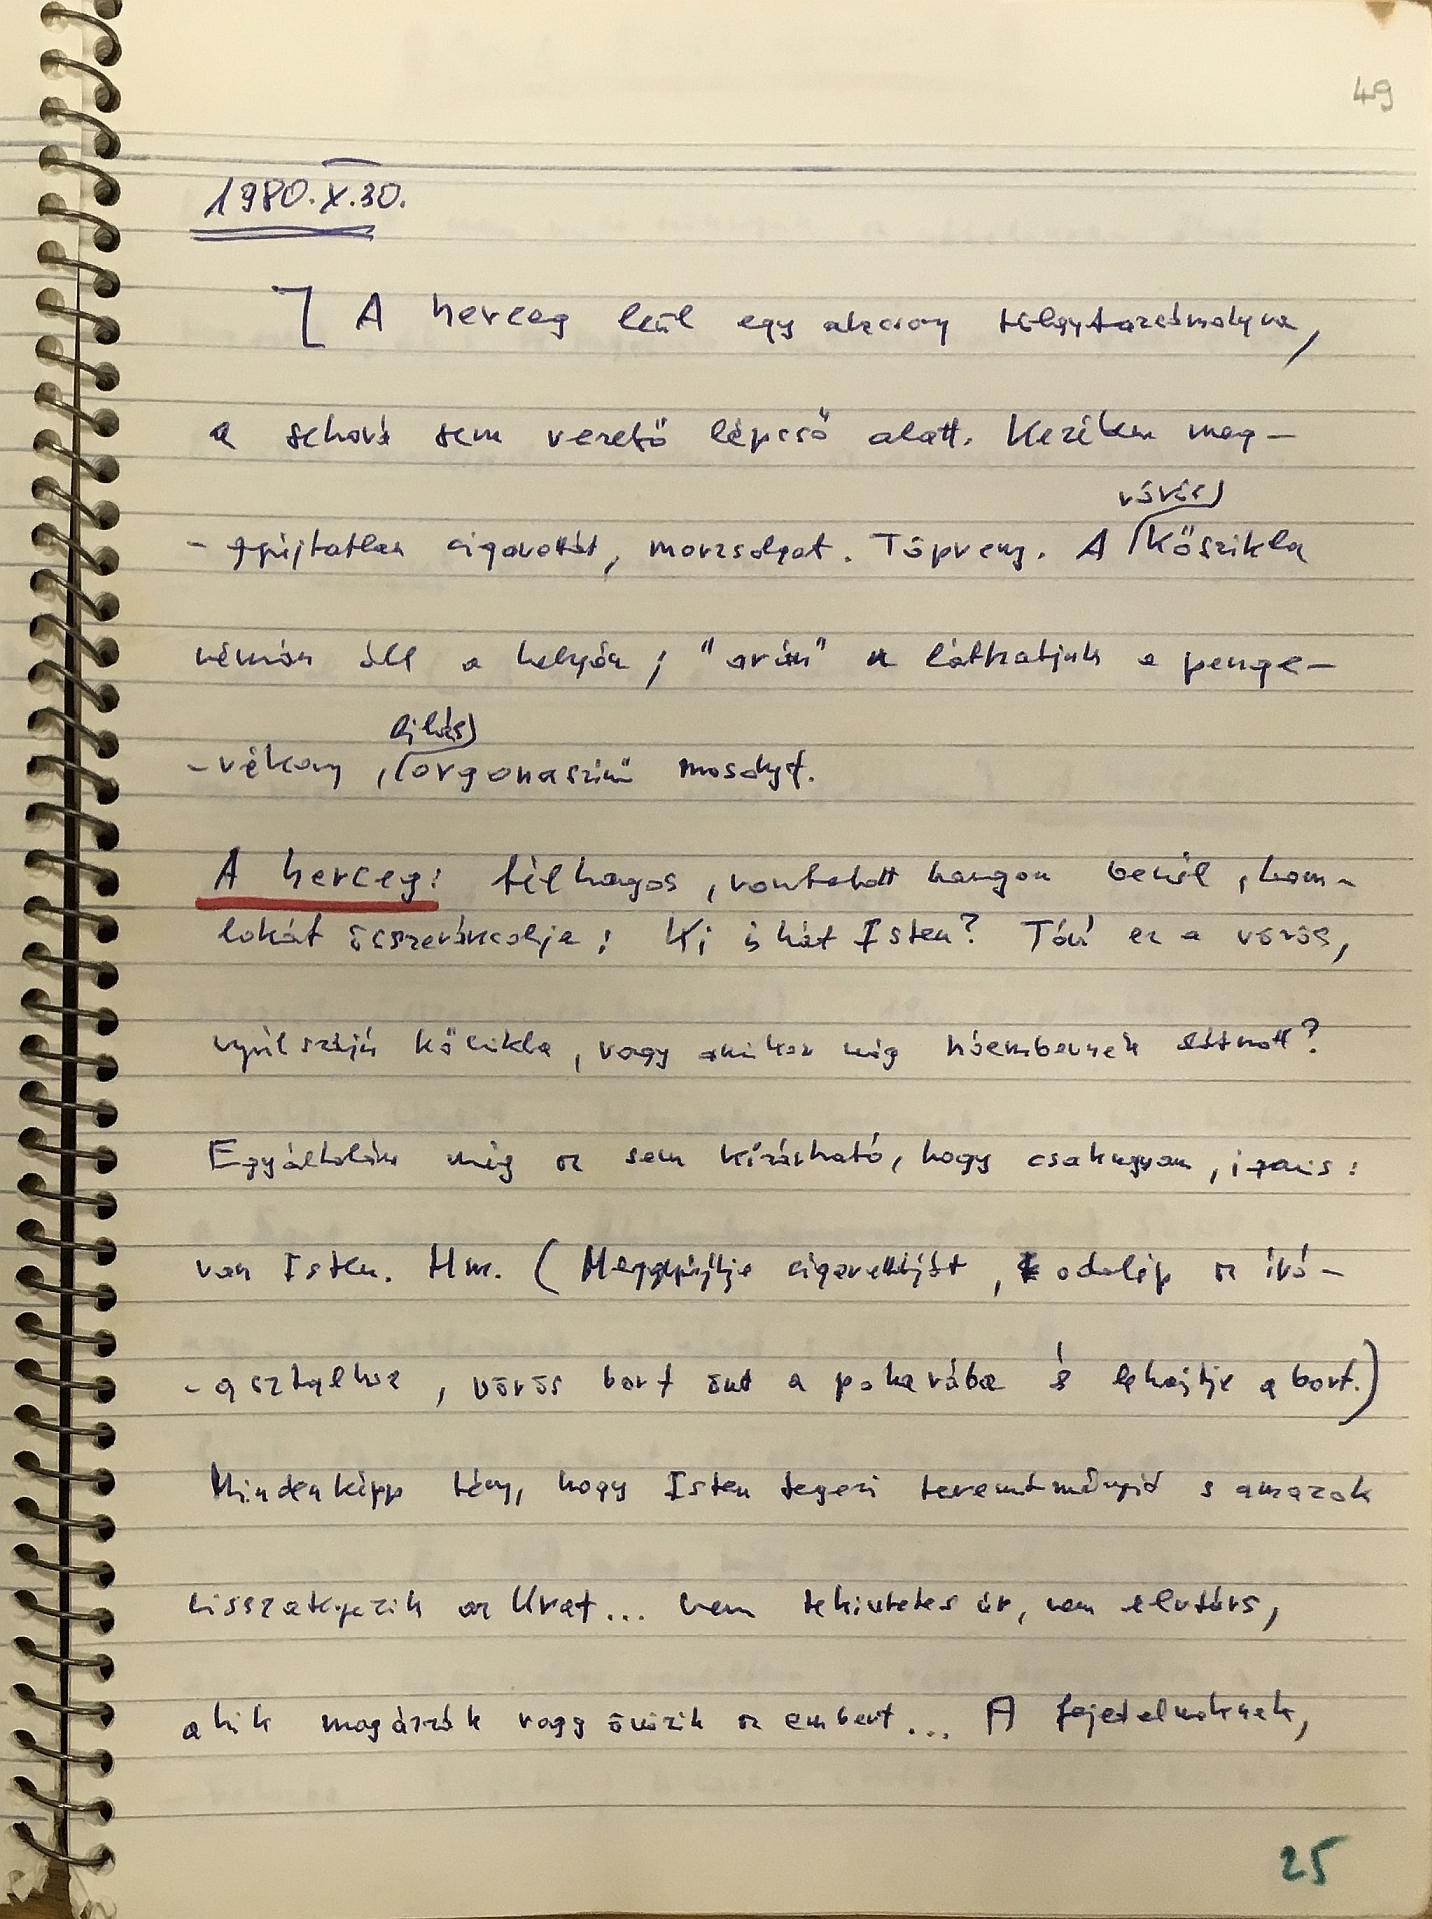 49
1980. X. 30.
A herceg leül egy alacsony tölgyfazsámolyra,
a sehová sem vezető lépcső alatt. Kezében meg-
vörös
-gyújtatlan cigarettát, morzsolgat. Töpreng. A kőszikla
némán áll a helyén; "arcán" láthatjuk a penge-
lilás
-vékony, orgonaszínű mosolyt.
A herceg: félhagos, vontatott hangon beszél, hom-
lokát összeráncolja: Ki is hát Isten? Tán ez a vörös,
nyúlszájú kőszikla, vagy amikor még hóembernek látszott?
Egyáltalán még az sem kizárható, hogy csakugyan, igazis:
van Isten. Hm. (Meggyújtja cigarettáját, odalép az ívó-
-asztalhoz, vörös bort önt a poharába és lehajtja a bort.)
Mindenképp tény, hogy Isten tegezi teremtményeit s amazok
visszategezik az Urat... nem tekintetes úr, nem elvtárs,
akik magázzák vagy önözik az embert... A fejedelmeknek,
25